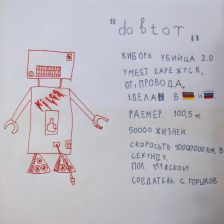 "doktor"
КИБОРГ УБИЙЦА 2.0
УМЕЕТ ЗАРЕЖТСЯ,
ОТ ПРОВОДА,
СДЕЛАН В И
РАЗМЕР 100,5 м.
50000 ЖИЗНЕЙ.
СКОРОСТЬ 10000000 КМ. В
СЕКУНДУ.
ПОЛ. МУЖСКОЙ
СОЗДАТЕЛЬ С. ГОРШКОВ